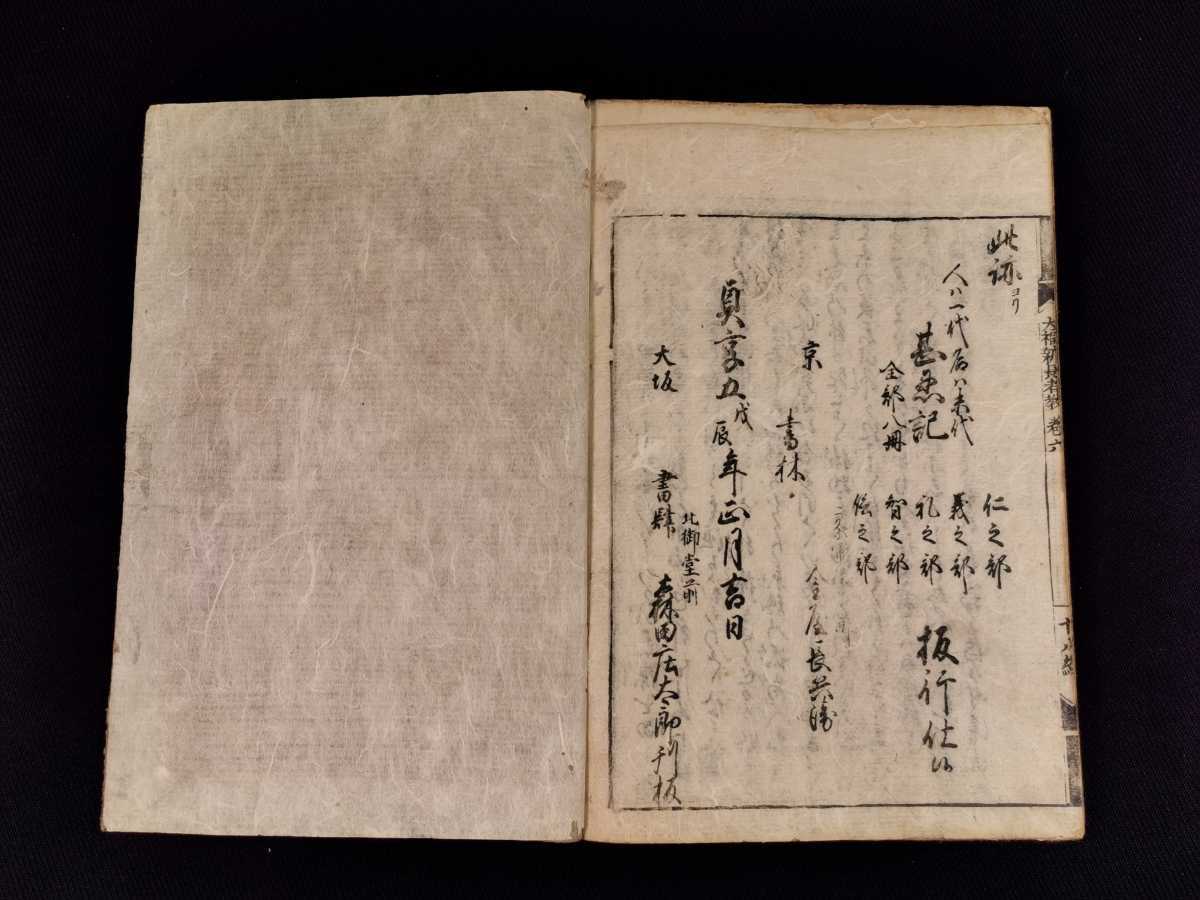 此跡ヨリ
人ハ一代名ハ末代
甚忍記
全部八冊
仁之部
義之部
礼之部
智之部
信之部
板行仕候
京
書林
金屋長兵衛
貞享五戊辰年正月吉日
大坂
書肆
北御堂前
森田庄太郎刊板
大福新長者教 巻六